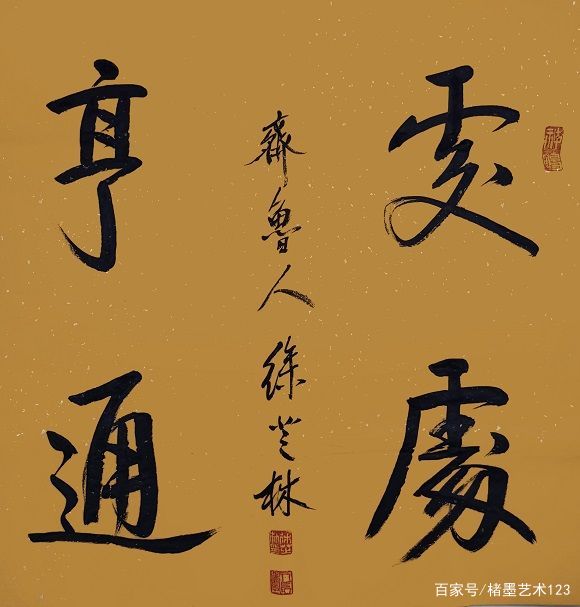 處處
亨通
齊魯人徐芝林
百家号/楮墨艺术123